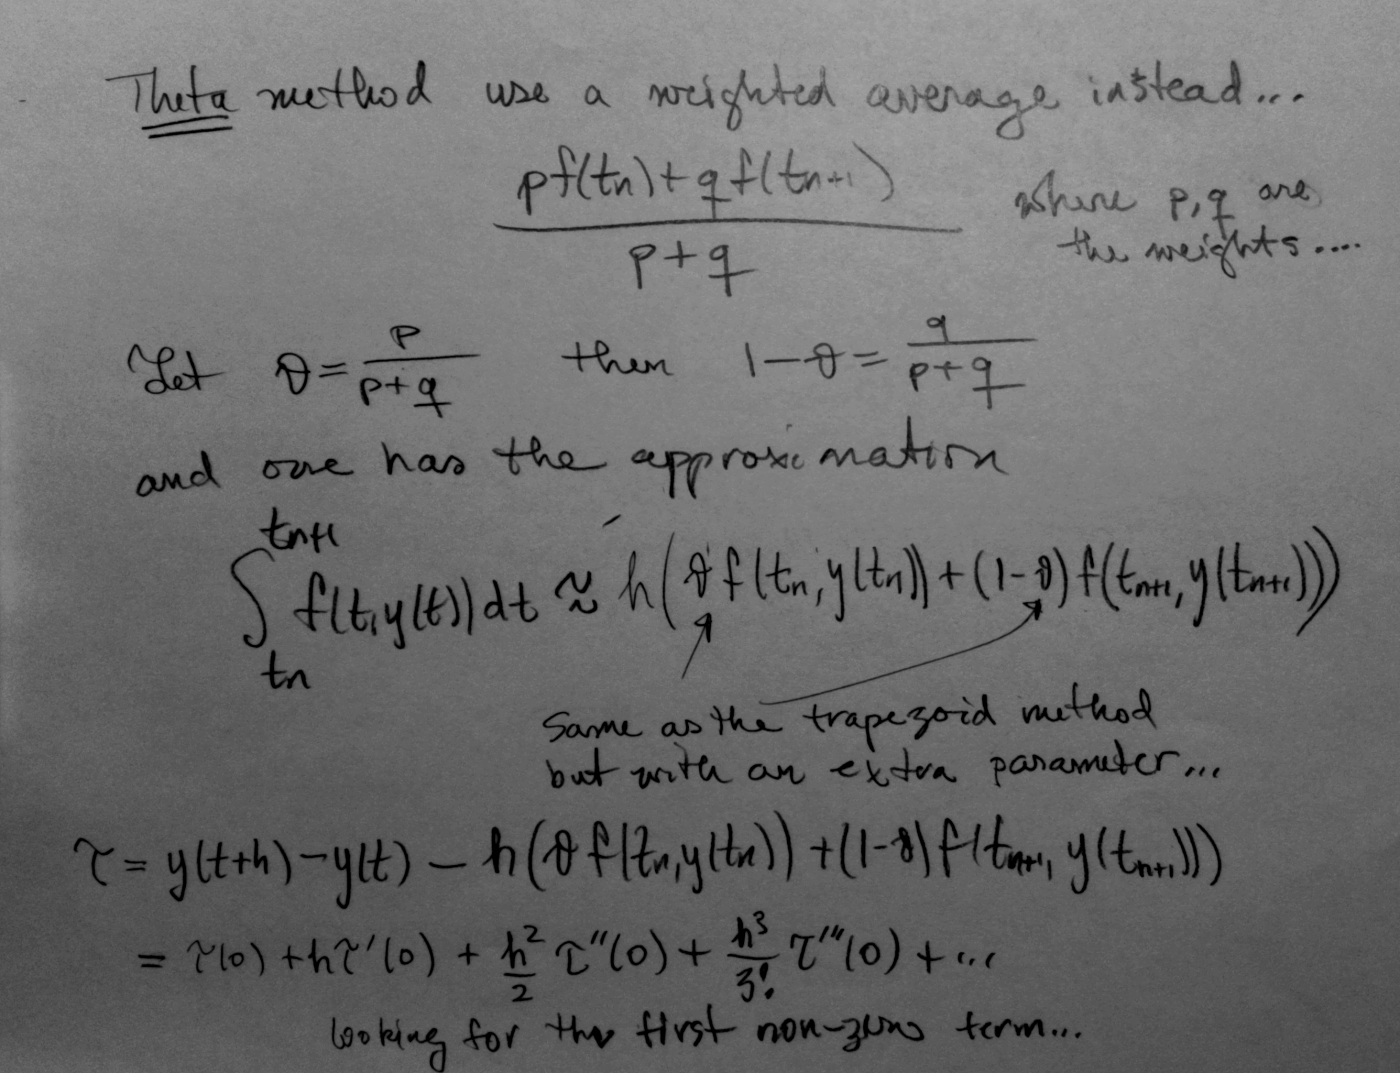 Theta method use a weighted average instead...
pf(tn)+qf(tn+1)
p+q
where p,q are
the weights....
Let θ = p/(p+q) then 1-θ = q/(p+q)
and one has the approximation
∫_{tn}^{tn+1} f(t,y(t))dt ≈ h(θf(tn,y(tn))+(1-θ)f(tn+1,y(tn+1)))
Same as the trapezoid method
but with an extra parameter...
τ = y(t+h)-y(t) - h(θf(tn,y(tn))+(1-θ)f(tn+1,y(tn+1)))
= τ(0)+hτ'(0)+h²/2 τ''(0)+h³/3! τ'''(0)+...
looking for the first non-zero term...